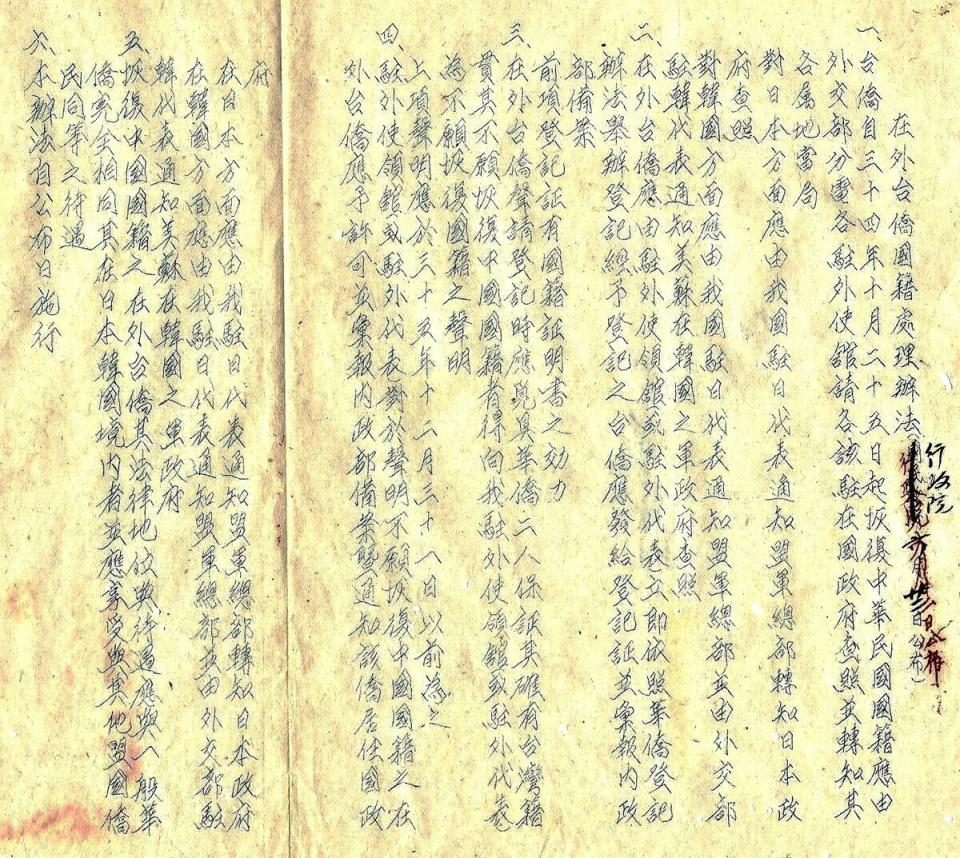 在外台僑國籍處理辦法
行政院
日公布)
一、台僑自三十四年十月二十五日起恢復中華民國國籍應由
外交部分電各駐外使館請各該駐在國政府查照並轉知其
各屬地當局
對日本方面應由我國駐日代表通知盟軍總部轉知日本政
府查照
對韓國方面應由我國駐日代表通知盟軍總部並由外交部
駐韓代表通知美蘇在韓國之軍政府查照
二、在外台僑應由駐外使領館或駐外代表立即依照華僑登記
辦法舉辦登記經予登記之台僑應發給登記証並彙報內政
部備案
前項登記証有國籍証明書之効力
三、在外台僑聲請登記時應覓具華僑二人保証其確有台灣籍
貫其不願恢復中國國籍者得向我駐外使領館或駐外代表
為不願恢復國籍之聲明
上項聲明應於三十五年十二月三十一日以前為之
四、駐外使領館或駐外代表對於聲明不願恢復中國國籍之在
外台僑應予許可並彙報內政部備案暨通知該僑居住國政
府
在日本方面應由我駐日代表通知盟軍總部轉知日本政府
在韓國方面應由我駐日代表通知盟軍總部並由外交部駐
韓代表通知美蘇在韓國之軍政府
五、恢復中國國籍之在外台僑其法律地位與待遇應與一般華
僑完全相同其在日本韓國境內者並應享受與其他盟國僑
民同等之待遇
六、本辦法自公布日施行